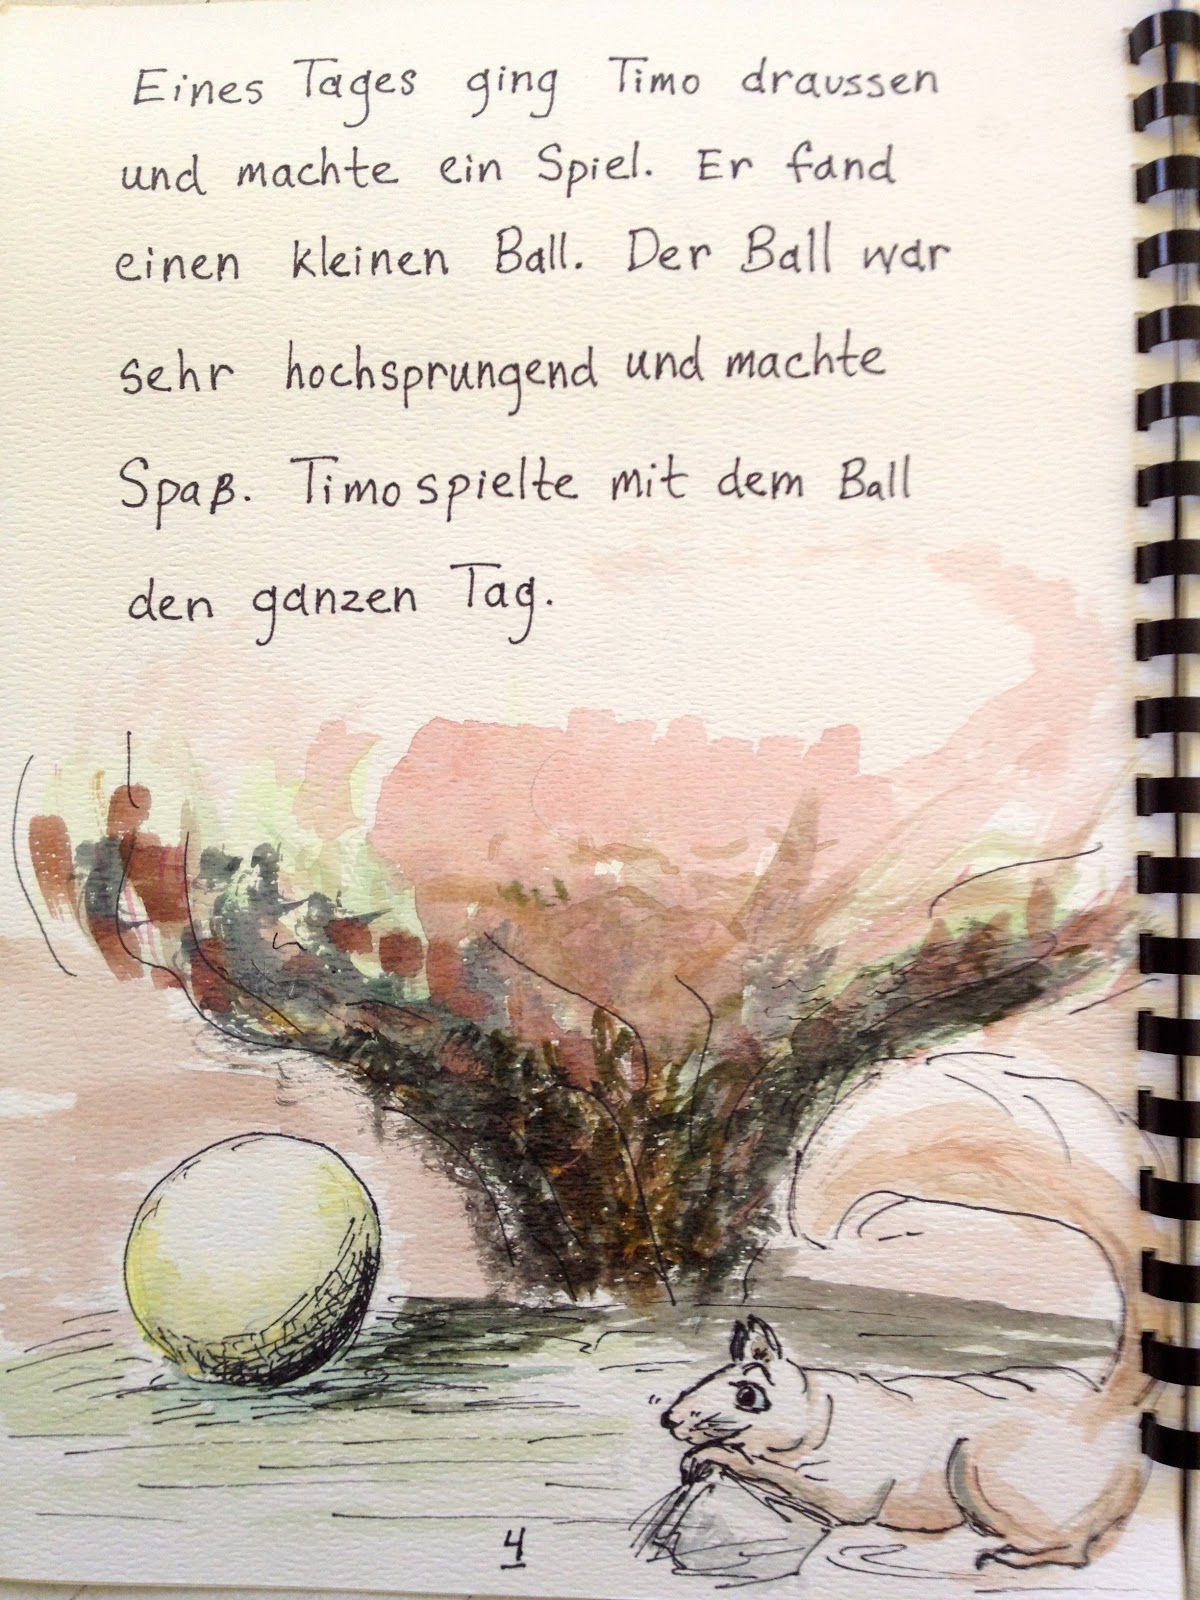 Eines Tages ging Timo draussen
und machte ein Spiel. Er fand
einen kleinen Ball. Der Ball war
sehr hochsprungend und machte
Spaß. Timo spielte mit dem Ball
den ganzen Tag.
4